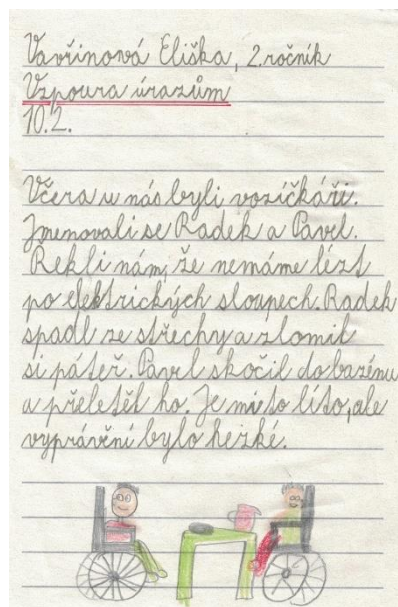 Vavřinová Eliška, 2. ročník
Vzpoura úrazům
10.2.
Včera u nás byli vozíčkáři.
Jmenovali se Radek a Pavel.
Řekli nám, že nemáme lézt
po elektrických sloupech. Radek
spadl ze střechy a zlomil
si páteř. Pavel skočil do bazénu
a přeletěl ho. Je mi to líto, ale
vyprávění bylo hezké.